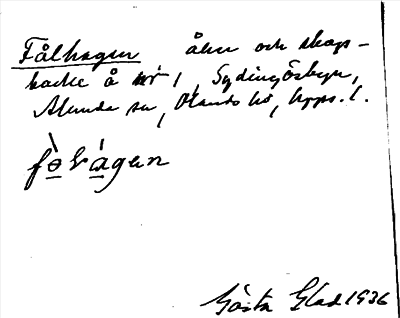 Fålhagen åker och skogs-
backe å nr 1, Sydingesbyn,
Alunda sn, Olands hd, Upps. l.
fə̀lágen
Gösta Glad 1936